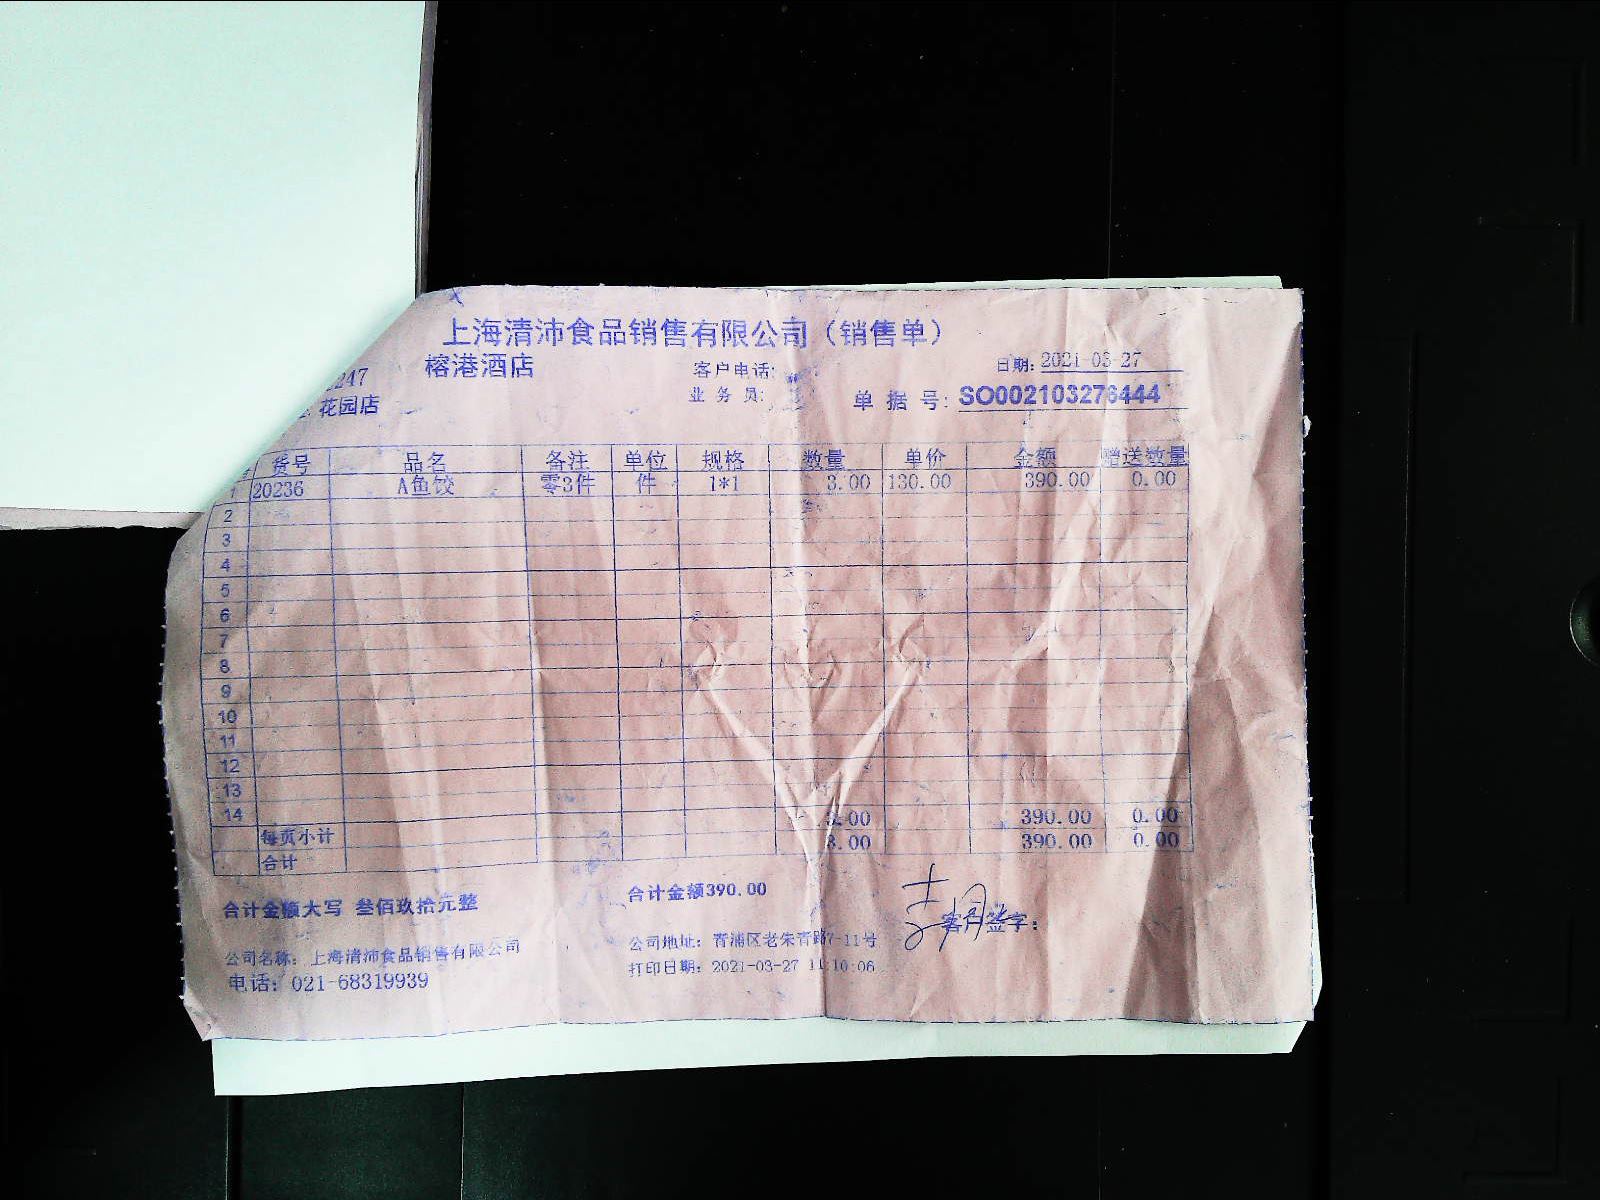 上海清沛食品销售有限公司（销售单）
2247 榕港酒店 客户电话: 日期: 2021-03-27
花园店 业务员: 单据号: SO002103276444
货号 品名 备注 单位 规格 数量 单价 金额 赠送数量
1 20236 A鱼饺 零3件 件 1*1 3.00 130.00 390.00 0.00
2
3
4
5
6
7
8
9
10
11
12
13
14
每页小计 3.00 390.00 0.00
合计 3.00 390.00 0.00
合计金额大写 叁佰玖拾元整 合计金额390.00
客户签字：
公司名称：上海清沛食品销售有限公司 公司地址：青浦区老朱青路7-11号
电话：021-68319939 打印日期：2021-03-27 11:10:06